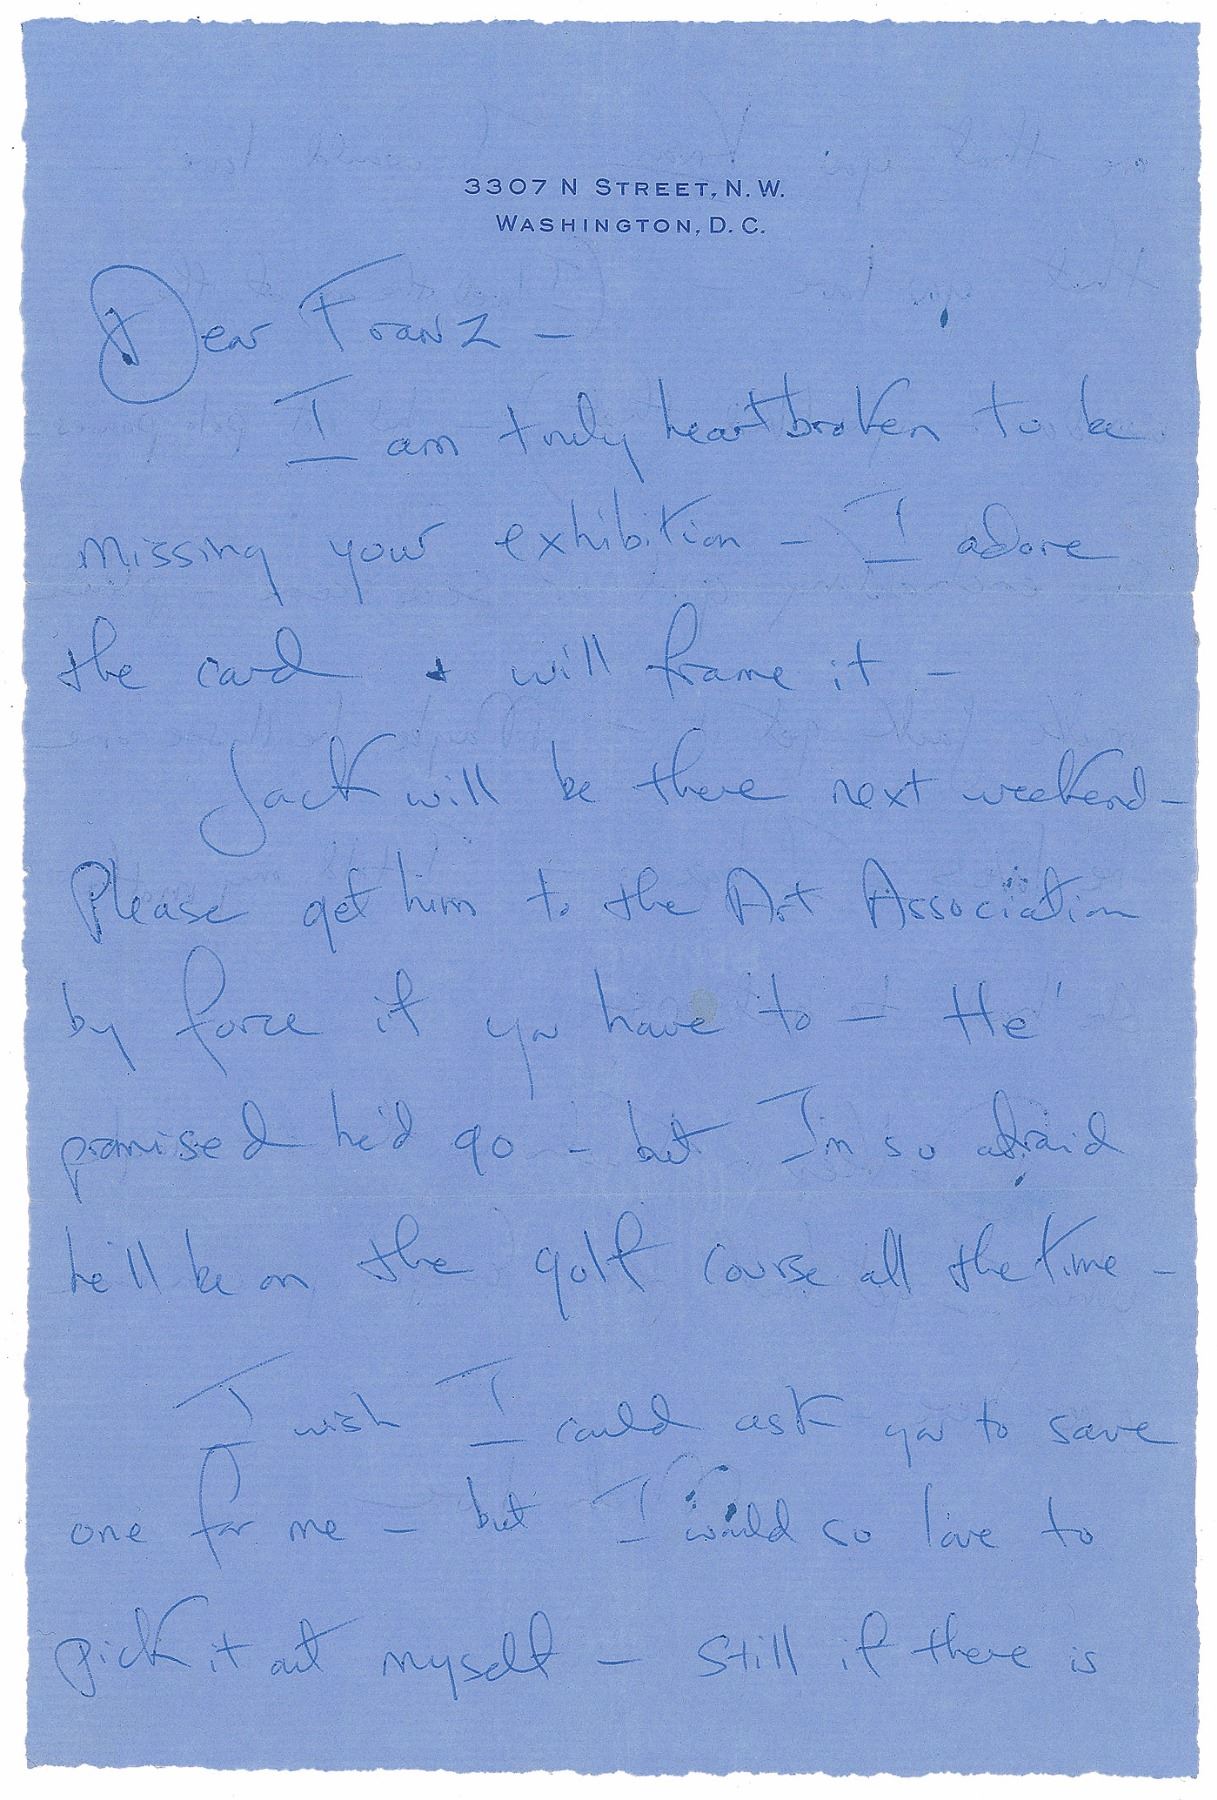 3307 N STREET, N.W.
WASHINGTON, D.C.
Dear Franz –
I am truly heartbroken to be
missing your exhibition – I adore
the card + will frame it –
Jack will be there next weekend –
Please get him to the Art Association
by force if you have to – He'
promised he'd go – but I'm so afraid
he'll be on the golf course all the time –
I wish I could ask you to save
one for me – but I would so love to
pick it out myself – Still if there is